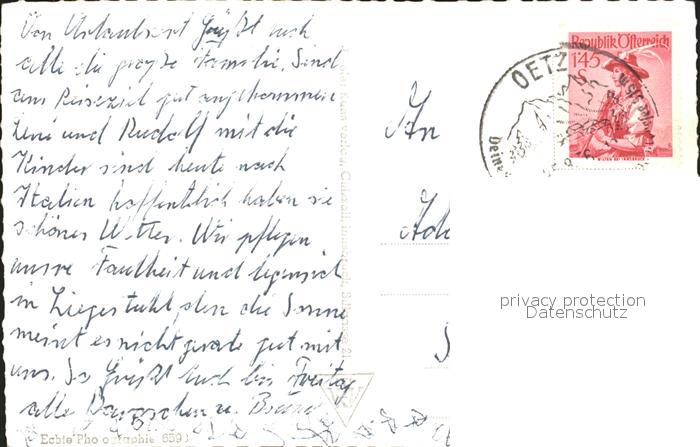 Von Urlaubsort Grüßt euch
alle die große Familie. Sind
am Reiseziel gut angekommen
Leni und Rudolf mit die
Kinder sind heute nach
Italien hoffentlich haben sie
schönes Wetter. Wir pflegen
unsre Faulheit und legen sich
in Liegestuhl den die Sonne
meint es nicht gerade gut mit
uns. So Grüßt Euch bis Freitag
alle
Echte Photographie 659
An
Republik Österreich
1'45
WILTEN BEI INNSBRUCK
OETZ
privacy protection
Datenschutz